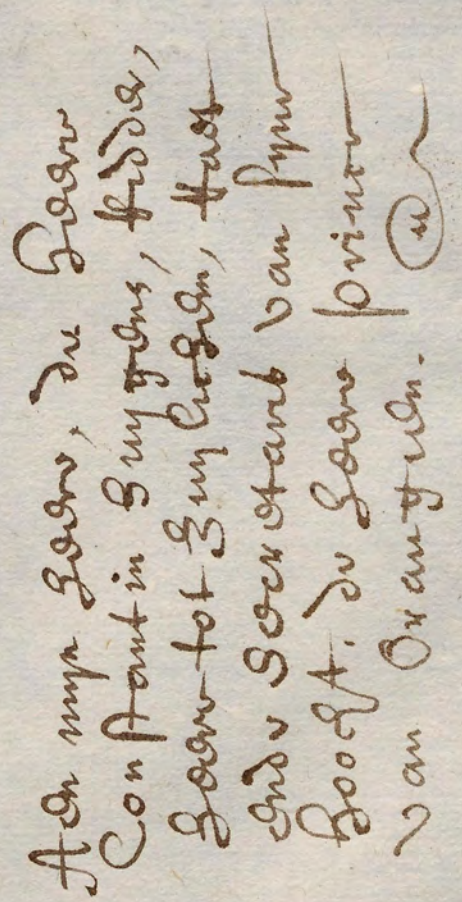 Aen mijn heere, den heere
Constantin Huygens, Ridder,
heere tot Zuylichem, Raet
ende Secretaris van syne
Hoocht. de heere prince
van Orangien.